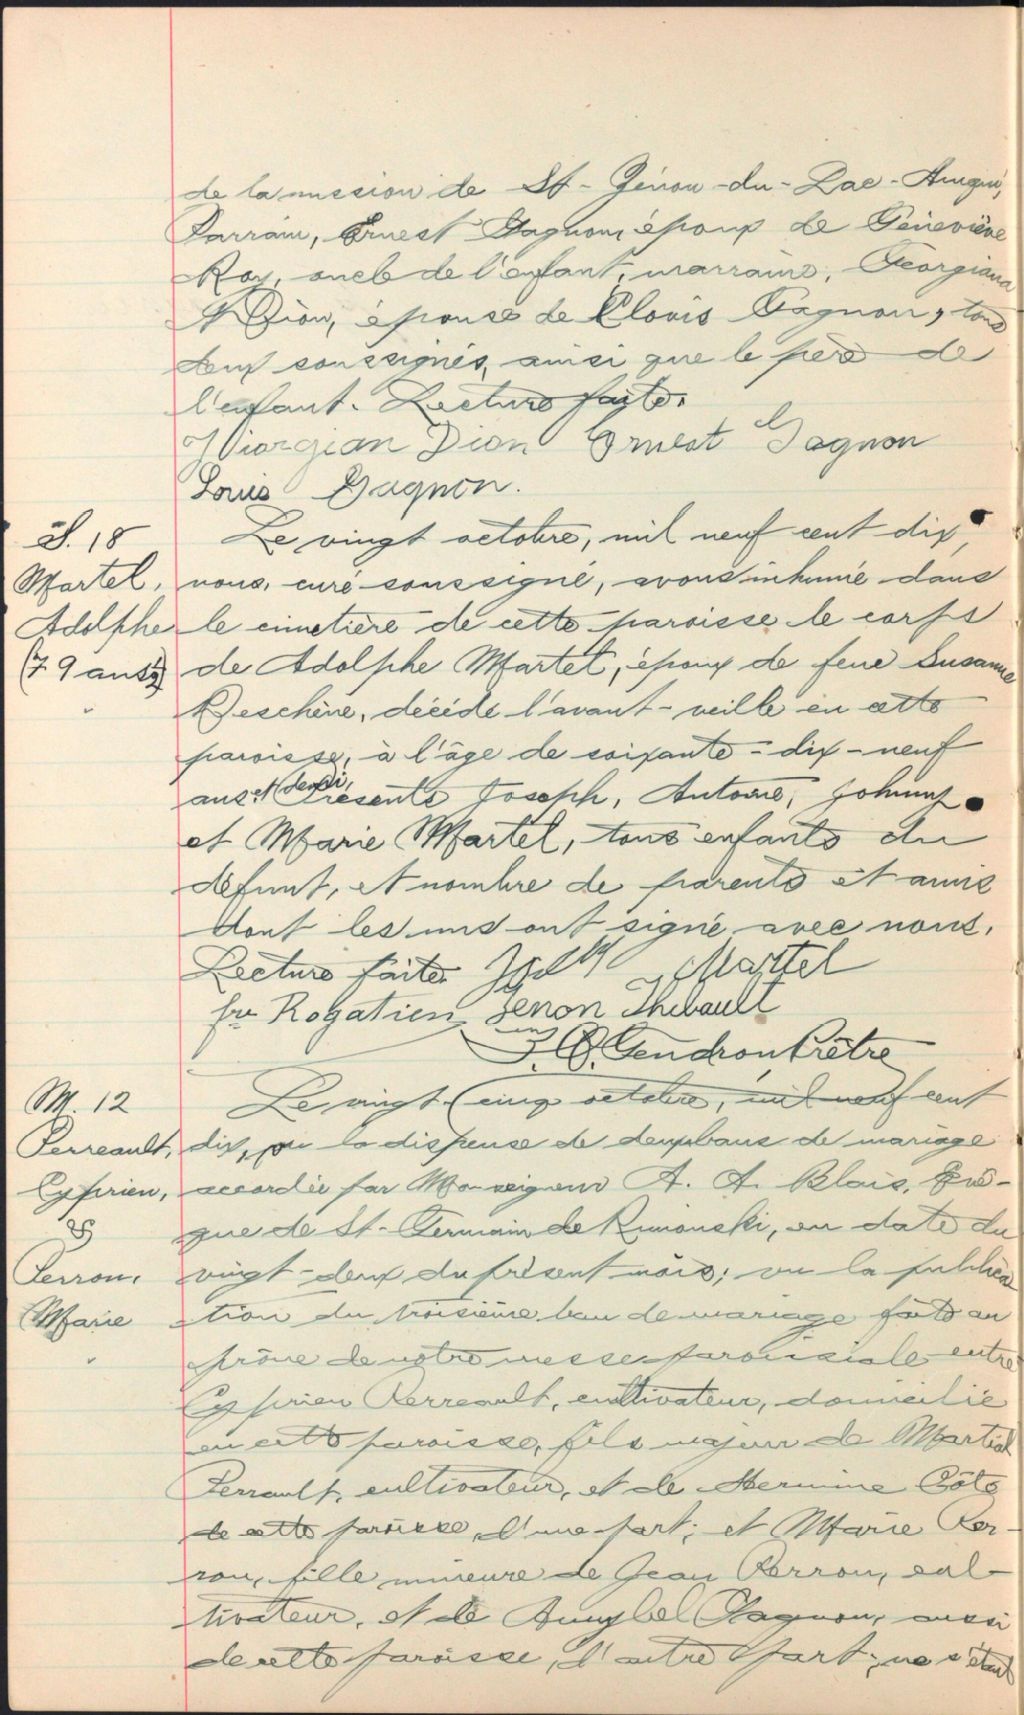 de la mission de St-Zénon-du-Lac-Humqui,
Parrain, Ernest Gagnon, époux de Geneviève
Roy, oncle de l'enfant, marraine, Georgiana
Dion, épouse de Clovis Gagnon, tous
deux soussignés, ainsi que le père de
l'enfant. Lecture faite.
Giorgian Dion Ernest Gagnon
Louis Gagnon.
S. 18
Martel,
Adolphe
(79 ans½)
Le vingt octobre, mil neuf cent dix,
nous, curé soussigné, avons inhumé dans
le cimetière de cette paroisse le corps
de Adolphe Martel, époux de feue Susanne
Deschêne, décédé l'avant-veille en cette
paroisse, à l'âge de soixante-dix-neuf
ans et demi, Présents Joseph, Antoine, Johnny
et Marie Martel, tous enfants du
défunt, et nombre de parents et amis
dont les uns ont signé avec nous.
Lecture faite. Martel
fre Rogatien Zenon Thibault
Gendron Prêtre
M. 12
Perreault,
Cyprien,
&
Perron,
Marie
Le vingt-cinq octobre, mil neuf cent
dix, vu la dispense de deux bans de mariage
accordée par Monseigneur A. A. Blais, Evê-
que de St-Germain de Rimouski, en date du
vingt-deux du présent mois; vu la publica
tion du troisième ban de mariage faite au
prône de notre messe paroissiale entre
Cyprien Perreault, cultivateur, domicilié
en cette paroisse, fils majeur de Martial
Perrault, cultivateur, et de Hermine Côté
de cette paroisse, d'une part; et Marie Per-
ron, fille mineure de Jean Perron, cul-
tivateur, et de Gagnon, aussi
de cette paroisse, d'autre part; ne s'étant